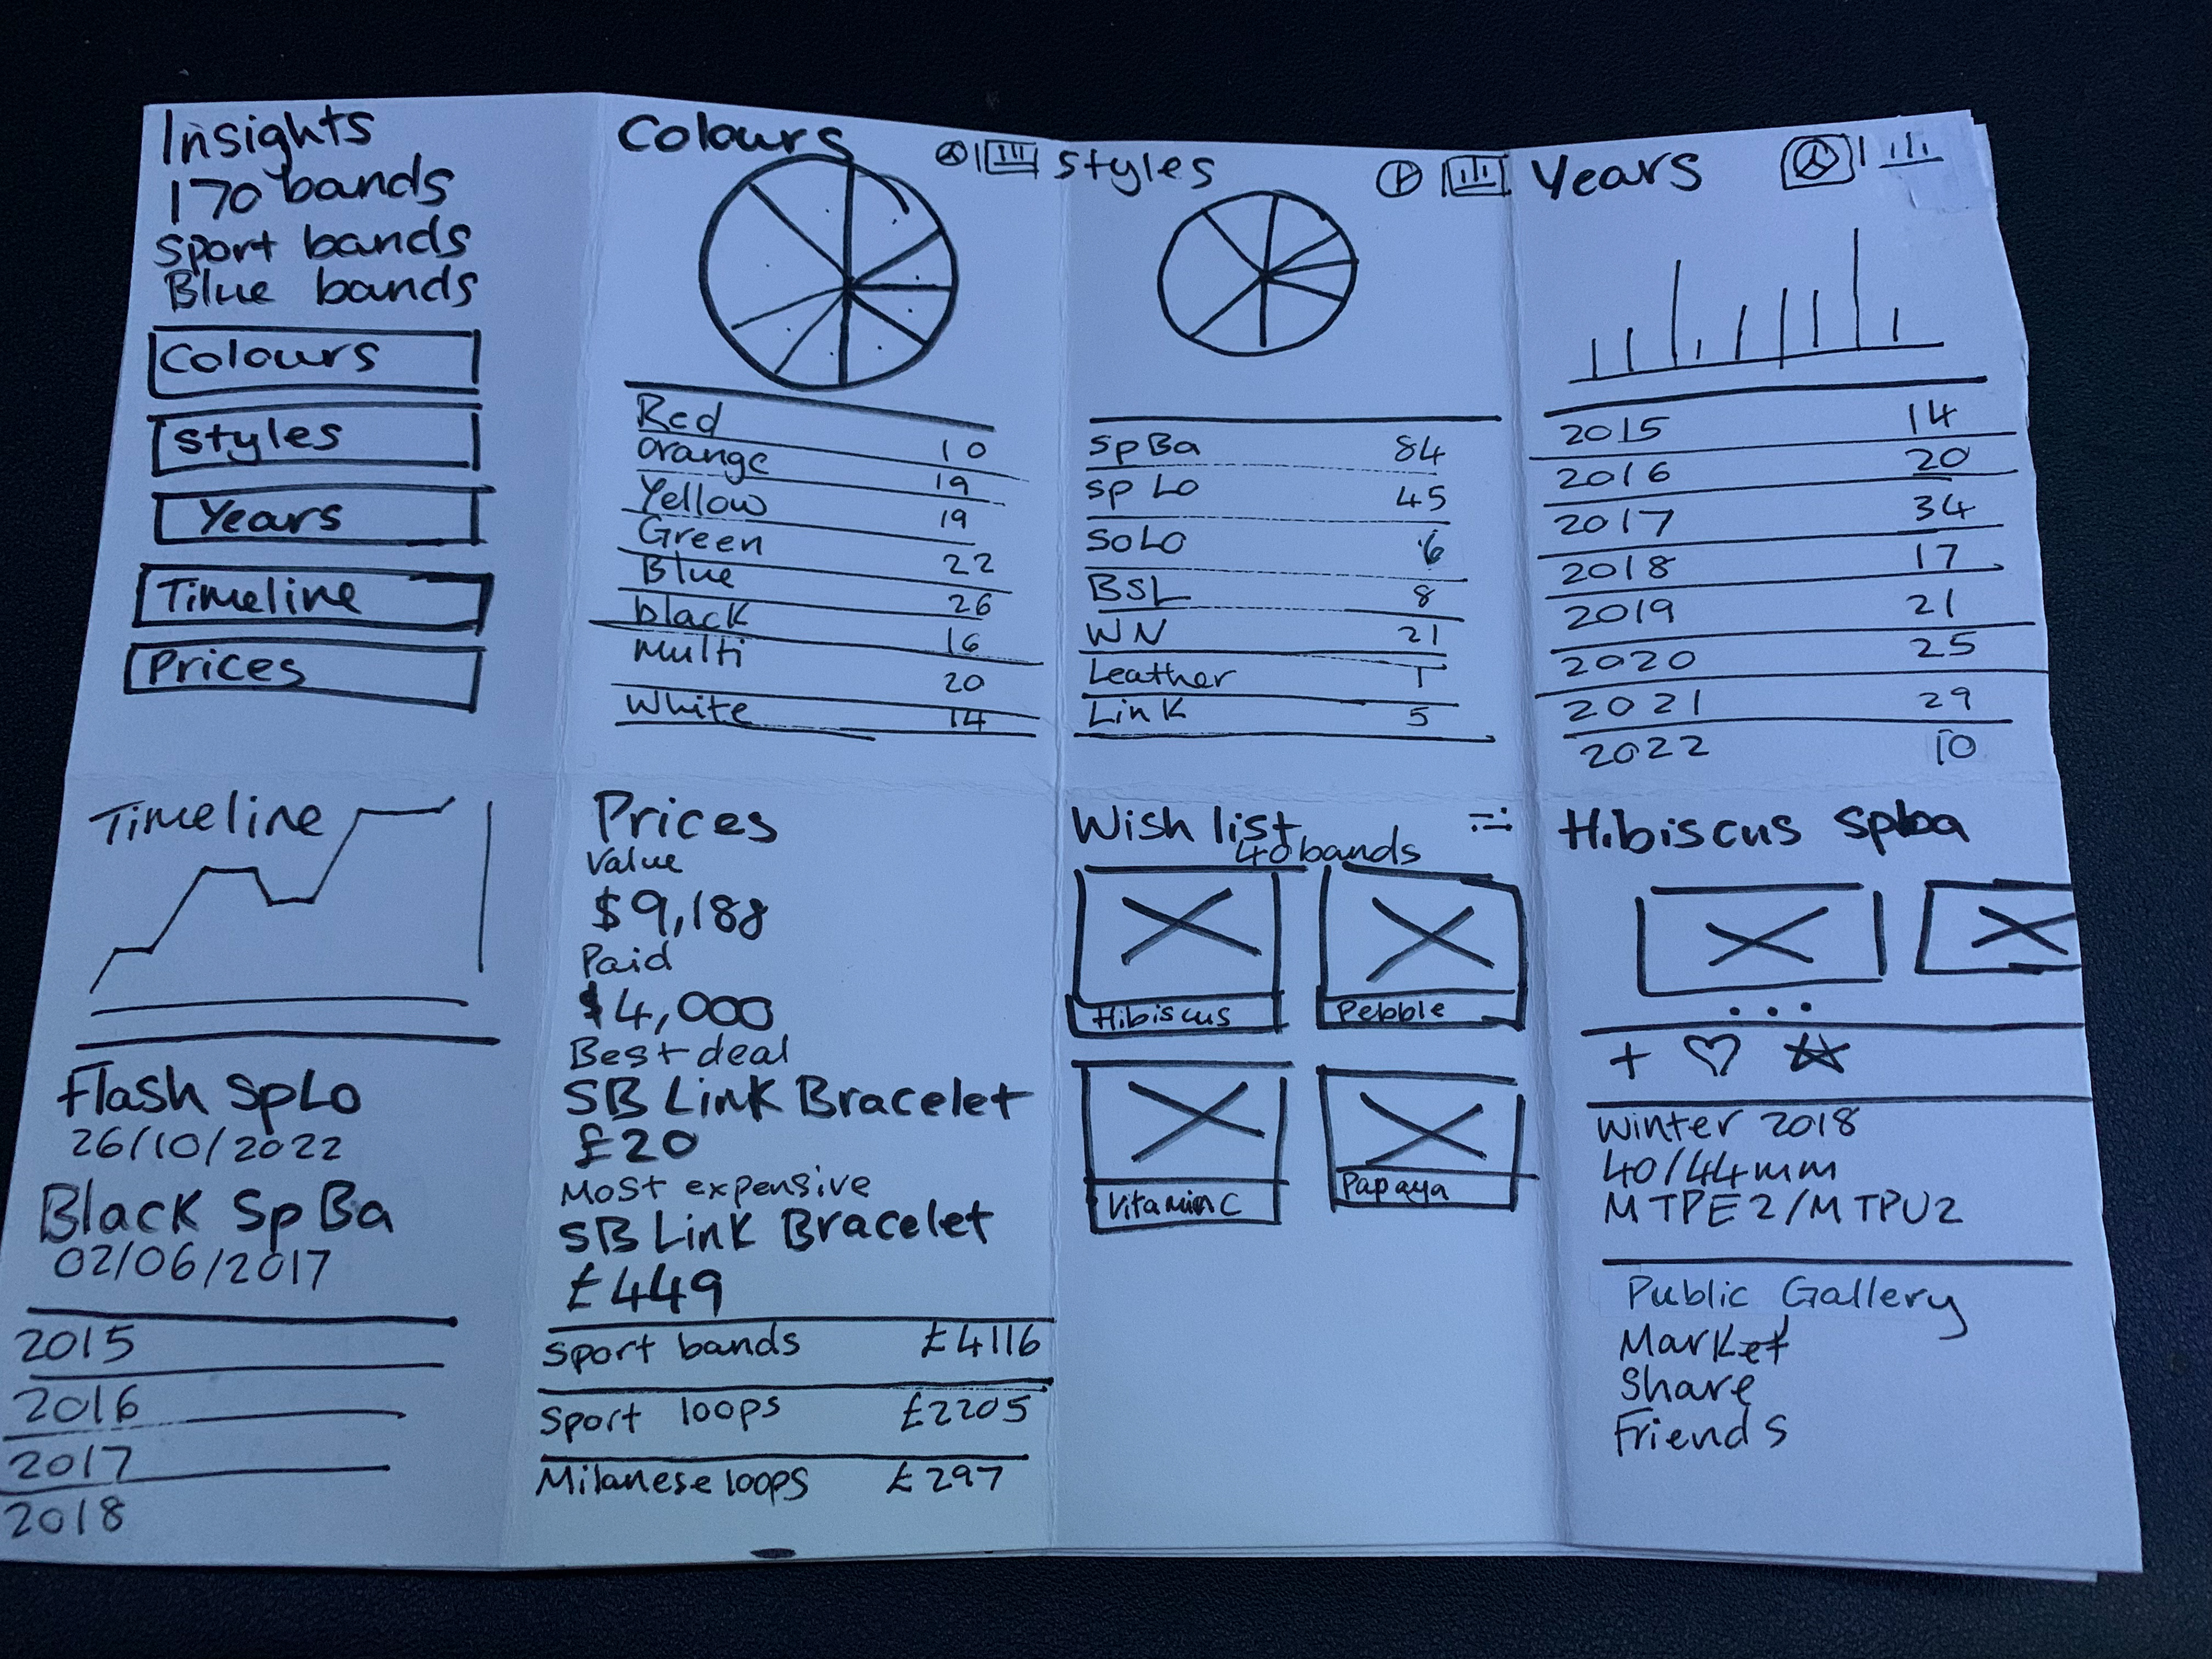 Insights
170 bands
Sport bands
Blue bands
Colours
Styles
Years
Timeline
Prices
Colours
Red 10
Orange 19
Yellow 19
Green 22
Blue 26
black 16
Multi 20
White 14
Styles
SpBa 84
Sp Lo 45
SoLo 6
BSL 8
WN 21
Leather 1
Link 5
Years
2015 14
2016 20
2017 34
2018 17
2019 21
2020 25
2021 29
2022 10
Timeline
Flash SpLo
26/10/2022
Black SpBa
02/06/2017
2015
2016
2017
2018
Prices
Value
$9,188
Paid
$4,000
Best deal
SB Link Bracelet
£20
Most expensive
SB Link Bracelet
£449
Sport bands £4116
Sport loops £2205
Milanese loops £297
Wish list
40 bands
Hibiscus
Pebble
Vitamin C
Papaya
Hibiscus Spba
Winter 2018
40/44mm
MTPE2/MTPU2
Public Gallery
Market
Share
Friends